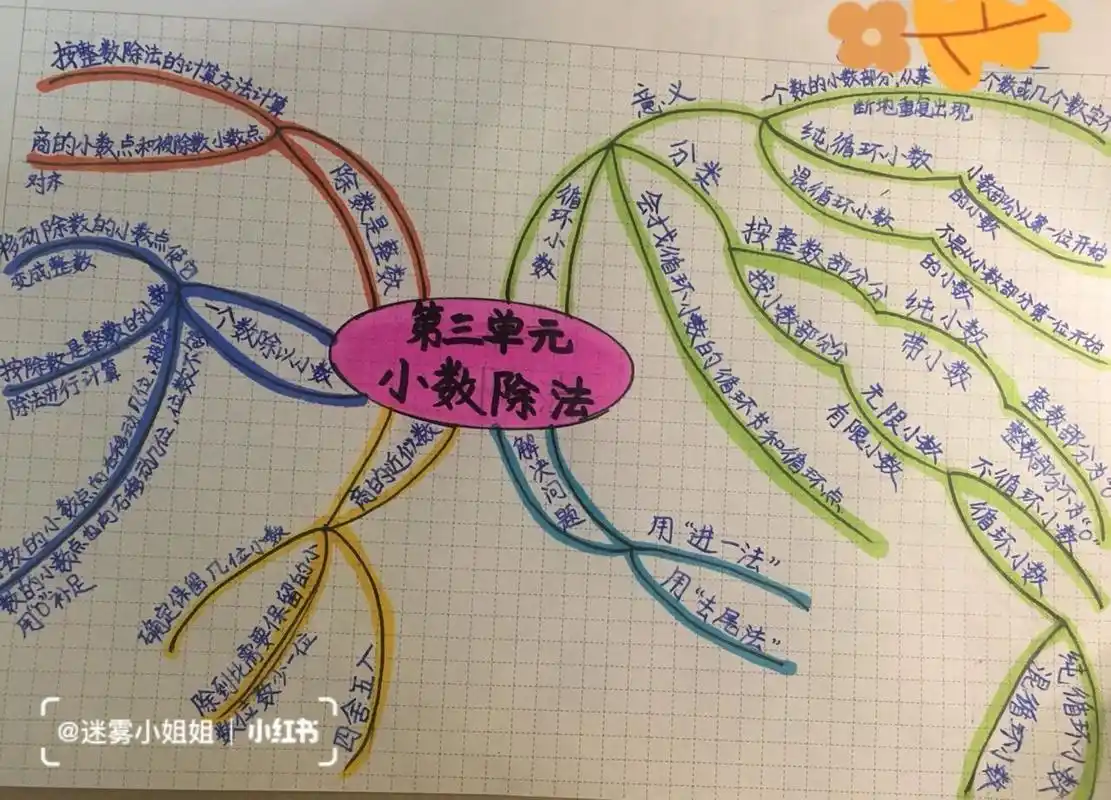 第三单元
小数除法
除数是整数
按整数除法的计算方法计算
商的小数点和被除数小数点
对齐
一个数除以小数
移动除数的小数点使它
变成整数
按除数是整数的小数
除法进行计算
数的小数点向右移动几位,被除
数的小数点也向右移动几位,位数不够
用"0"补足
商的近似数
确定保留几位小数
除到比需要保留的小
数位数多一位
四舍五入
解决问题
用"进一法"
用"去尾法"
循环小数
意义
个数的小数部分,从某
个数或几个数字
断地重复出现
纯循环小数
小数部分从第一位开始
的小数
混循环小数
不是从小数部分第一位开始
的小数
分类
按整数部分分
纯小数
带小数
整数部分为"0"
整数部分不为"0"
按小数部分分
无限小数
有限小数
不循环小数
循环小数
纯循环小数
混循环小数
会找循环小数的循环节和循环点
@迷雾小姐姐 | 小红书